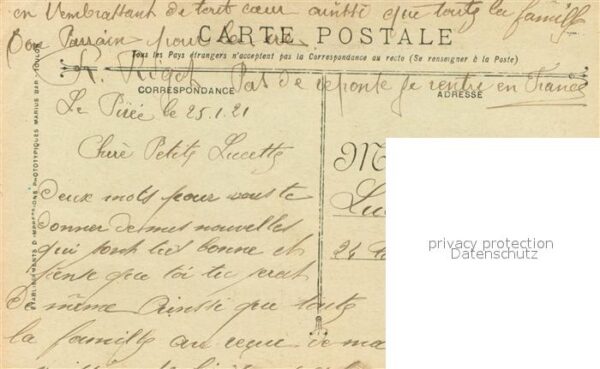 en t'embrassant de tout cœur ainssi que toute la famille
Ton Parrain pour la vie
CARTE POSTALE
Tous les Pays étrangers n'acceptent pas la Correspondance au recto (Se renseigner à la Poste)
Pas de reponse je rentre en France
CORRESPONDANCE
ADRESSE
Le Pirée le 25.1.21
Chère Petite Lucette
Deux mots pour te
donner de mes nouvelles
qui sont très bonne et
pense que toi tu serat
De même Ainssi que toute
la famille au reçue de ma
M
Luc
24
ETABLISSEMENTS D'IMPRESSIONS PHOTOTYPIQUES MARIUS BAR - TOULON
privacy protection
Datenschutz